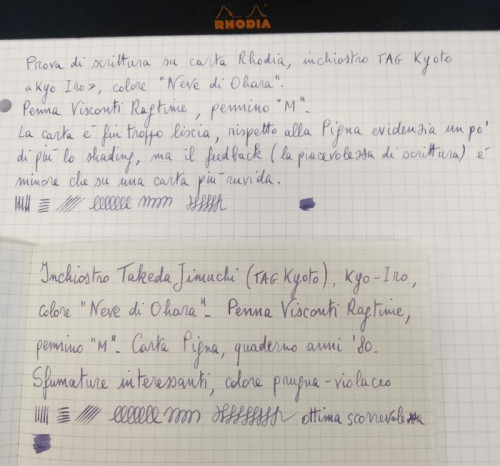 RHODIA
Prova di scrittura su carta Rhodia, inchiostro TAG Kyoto
«Kyo Iro», colore "Neve di Ohara".
Penna Visconti Ragtime, pennino "M".
La carta è fin troppo liscia, rispetto alla Pigna evidenzia un po'
di più lo shading, ma il feedback (la piacevolezza di scrittura) è
minore che su una carta più ruvida.
Inchiostro Takeda Jimuchi (TAG Kyoto), Kyo-Iro,
colore "Neve di Ohara". Penna Visconti Ragtime,
pennino "M". Carta Pigna, quaderno anni '80.
Sfumature interessanti, colore prugna-violaceo
ottima scorrevolezza